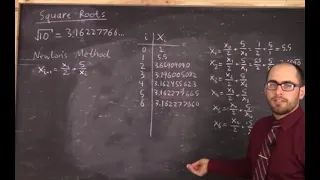 Square Roots
√10 = 3.16227766...
Newton's Method
Xᵢ₊₁ = Xᵢ/2 + 5/Xᵢ
i | Xᵢ
0 | 1
1 | 5.5
2 | 3.65909090
3 | 3.196005082
4 | 3.162455623
5 | 3.162277665
6 | 3.162277660
X₁ = X₀/2 + 5/X₀ = 1/2 + 5/1 = 5.5
X₂ = X₁/2 + 5/X₁
X₃ = X₂/2 + 5/X₂
X₄ = X₃/2 + 5
X₅ = X₄/2 + 5
X₆ = X₅/2 + 5